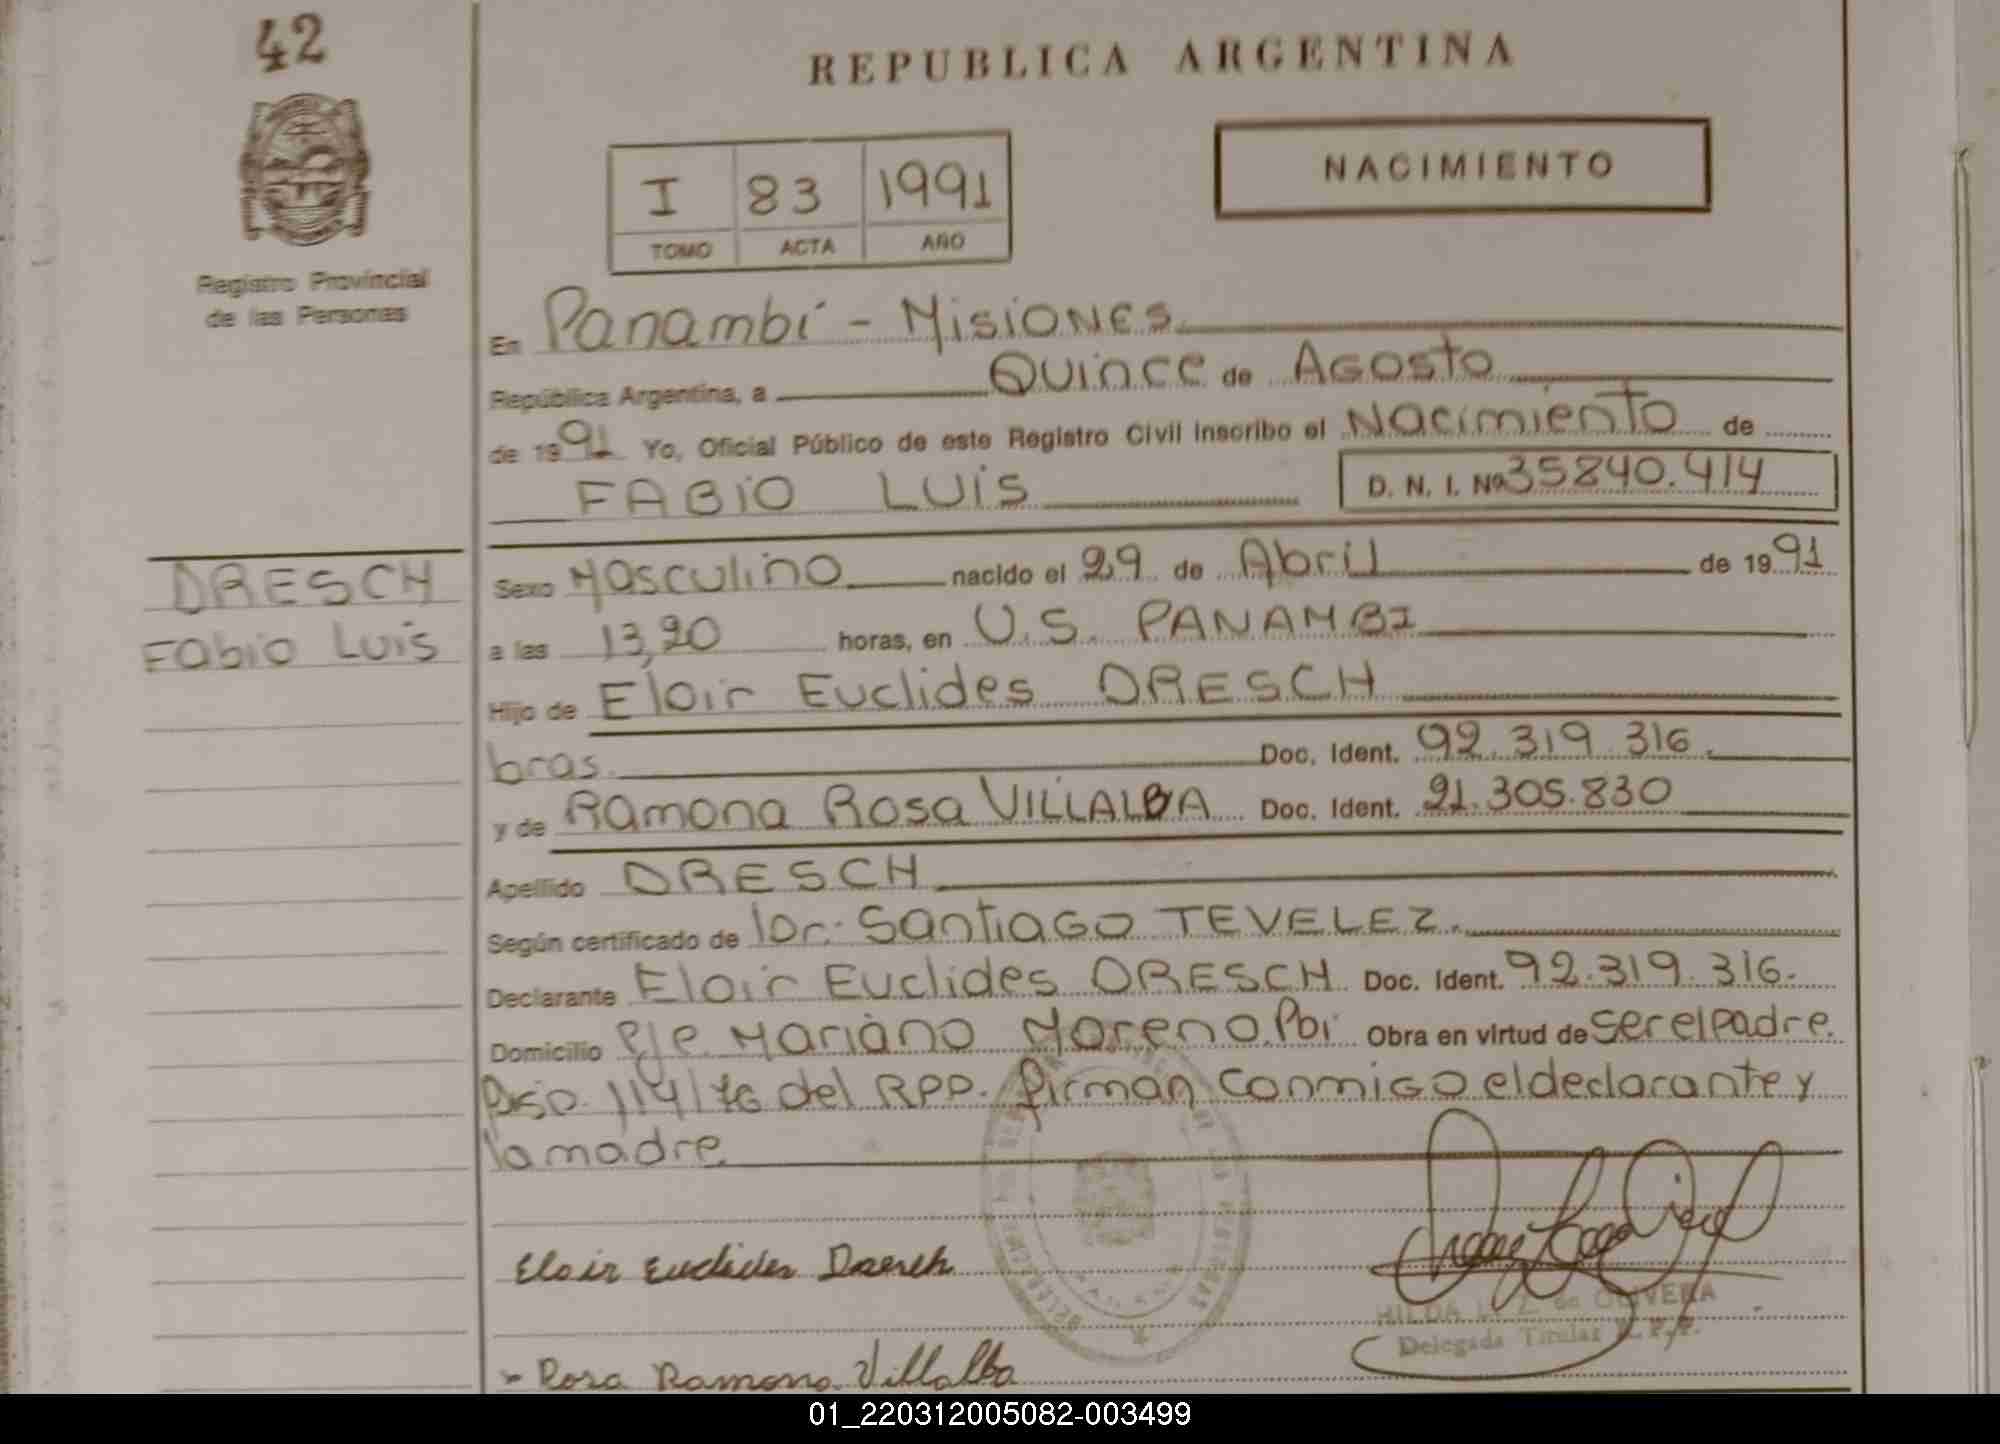 42
REPUBLICA ARGENTINA
NACIMIENTO
I 83 1991
TOMO ACTA AÑO
Registro Provincial
de las Personas
En Panambí - Misiones
República Argentina, a Quince de Agosto
de 1991 Yo, Oficial Público de este Registro Civil inscribo el Nacimiento de
FABIO LUIS D. N. I. Nº 35840.414
DRESCH
Fabio Luis
Sexo Masculino nacido el 29 de Abril de 1991
a las 13,20 horas, en U.S. PANAMBI
Hijo de Eloir Euclides DRESCH
bras. Doc. Ident. 92.319.316.
y de Ramona Rosa VILLALBA Doc. Ident. 21.305.830
Apellido DRESCH
Según certificado de Dr. Santiago TEVELEZ.
Declarante Eloir Euclides DRESCH Doc. Ident. 92.319.316.
Domicilio Pje Mariano Moreno. Pbí Obra en virtud de ser el padre.
114/76 del RPP. firman conmigo el declarante y
la madre
Eloir Euclides Dresch
HILDA de OLIVERA
Delegada Titular R. P. P.
- Rosa Ramona Villalba
01_220312005082-003499